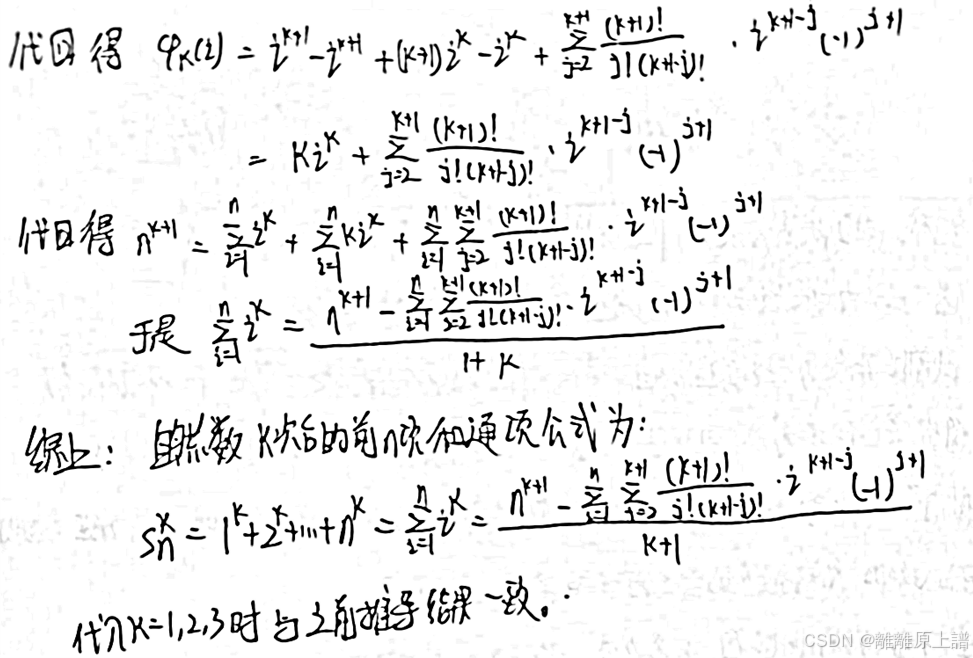 代回得 φₖ(i) = i^{k+1} - i^{k+1} + (k+1)i^k - i^k + \sum_{j=2}^{k+1} \frac{(k+1)!}{j!(k+1-j)!} · i^{k+1-j} (-1)^{j+1}
= ki^k + \sum_{j=2}^{k+1} \frac{(k+1)!}{j!(k+1-j)!} · i^{k+1-j} (-1)^{j+1}
代回得 n^{k+1} = \sum_{i=1}^{n} i^k + \sum_{i=1}^{n} ki^k + \sum_{i=1}^{n} \sum_{j=2}^{k+1} \frac{(k+1)!}{j!(k+1-j)!} · i^{k+1-j} (-1)^{j+1}
于是 \sum_{i=1}^{n} i^k = \frac{n^{k+1} - \sum_{i=1}^{n} \sum_{j=2}^{k+1} \frac{(k+1)!}{j!(k+1-j)!} · i^{k+1-j} (-1)^{j+1}}{1+k}
综上: 自然数k次方的前n项和通项公式为:
S_n^k = 1^k + 2^k + ... + n^k = \sum_{i=1}^{n} i^k = \frac{n^{k+1} - \sum_{i=1}^{n} \sum_{j=2}^{k+1} \frac{(k+1)!}{j!(k+1-j)!} · i^{k+1-j} (-1)^{j+1}}{k+1}
代入k=1,2,3时与之前推导结果一致。
CSDN @離離原上譜